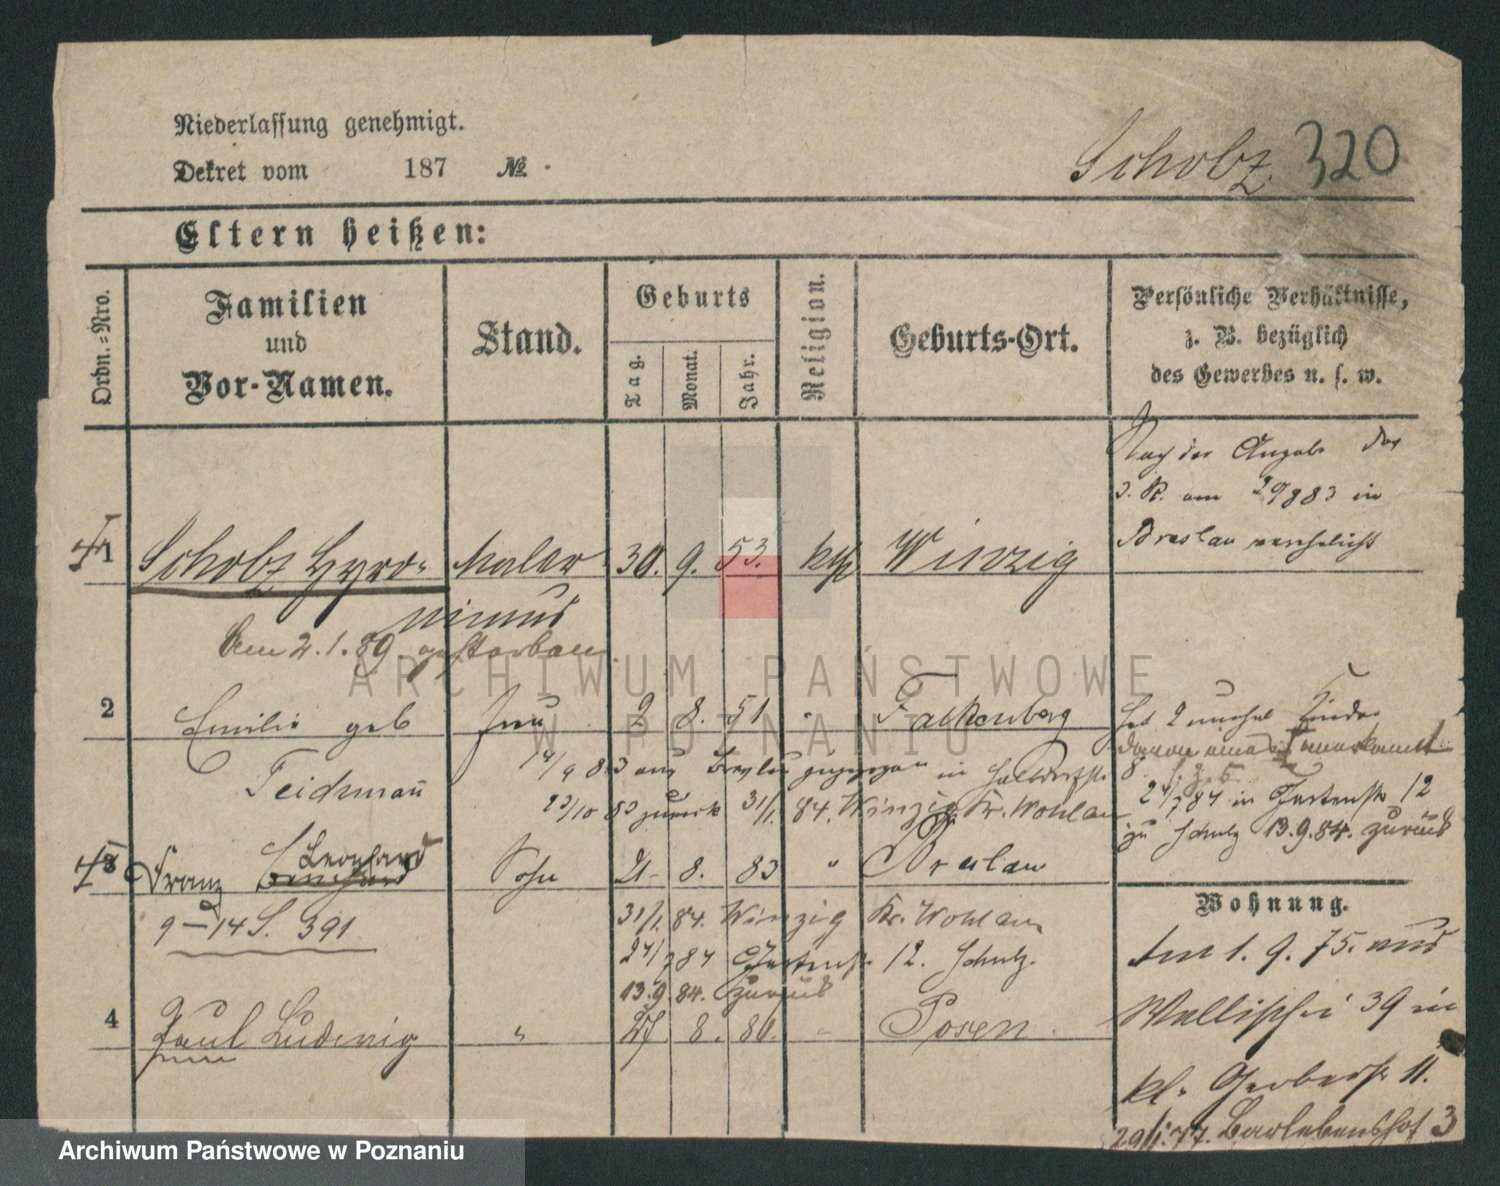 Niederlassung genehmigt.
Dekret vom 187 № .
Scholz. 320
Eltern heißen:
Ordn.=Nro.
Familien
und
Vor-Namen.
Stand.
Geburts
Tag.
Monat.
Jahr.
Religion.
Geburts-Ort.
Persönliche Verhältnisse,
z. B. bezüglich
des Gewerbes u. s. w.
Nach der Angabe des
am 29 8 83 in
Breslau verehelicht
1 Scholz Hyro- Maler 30. 9. 53. kth Winzig
nimus
Am 2. 1. 89 gestorben
2 Emilie geb Frau 2 8. 51 " Falkenberg
Teichmann
hat 2 unehel Kinder
davon eines anerkannt
14/9 83 aus Breslau zugezogen in
23/10 83 zurück 31/1. 84. Winzig Kr. Wohlau
24/7 84 in Gartenstr 12
zu Schulz 13. 9. 84. zurück
3 Franz Leonhard Sohn 21 8. 83 " Breslau
Bernhard
9-14 S. 391
31/1. 84. Winzig Kr. Wohlau
24/7 84 Gartenstr 12. Schulz.
13. 9. 84. zurück
4 Paul Ludwig " 8. 80. " Posen.
Wohnung.
Am 1. 9. 75. aus
Wallischei 39 in
kl. Gerberstr 11.
29/1. 77. Barlebenshof 3
ARCHIWUM PAŃSTWOWE
W POZNANIU
Archiwum Państwowe w Poznaniu